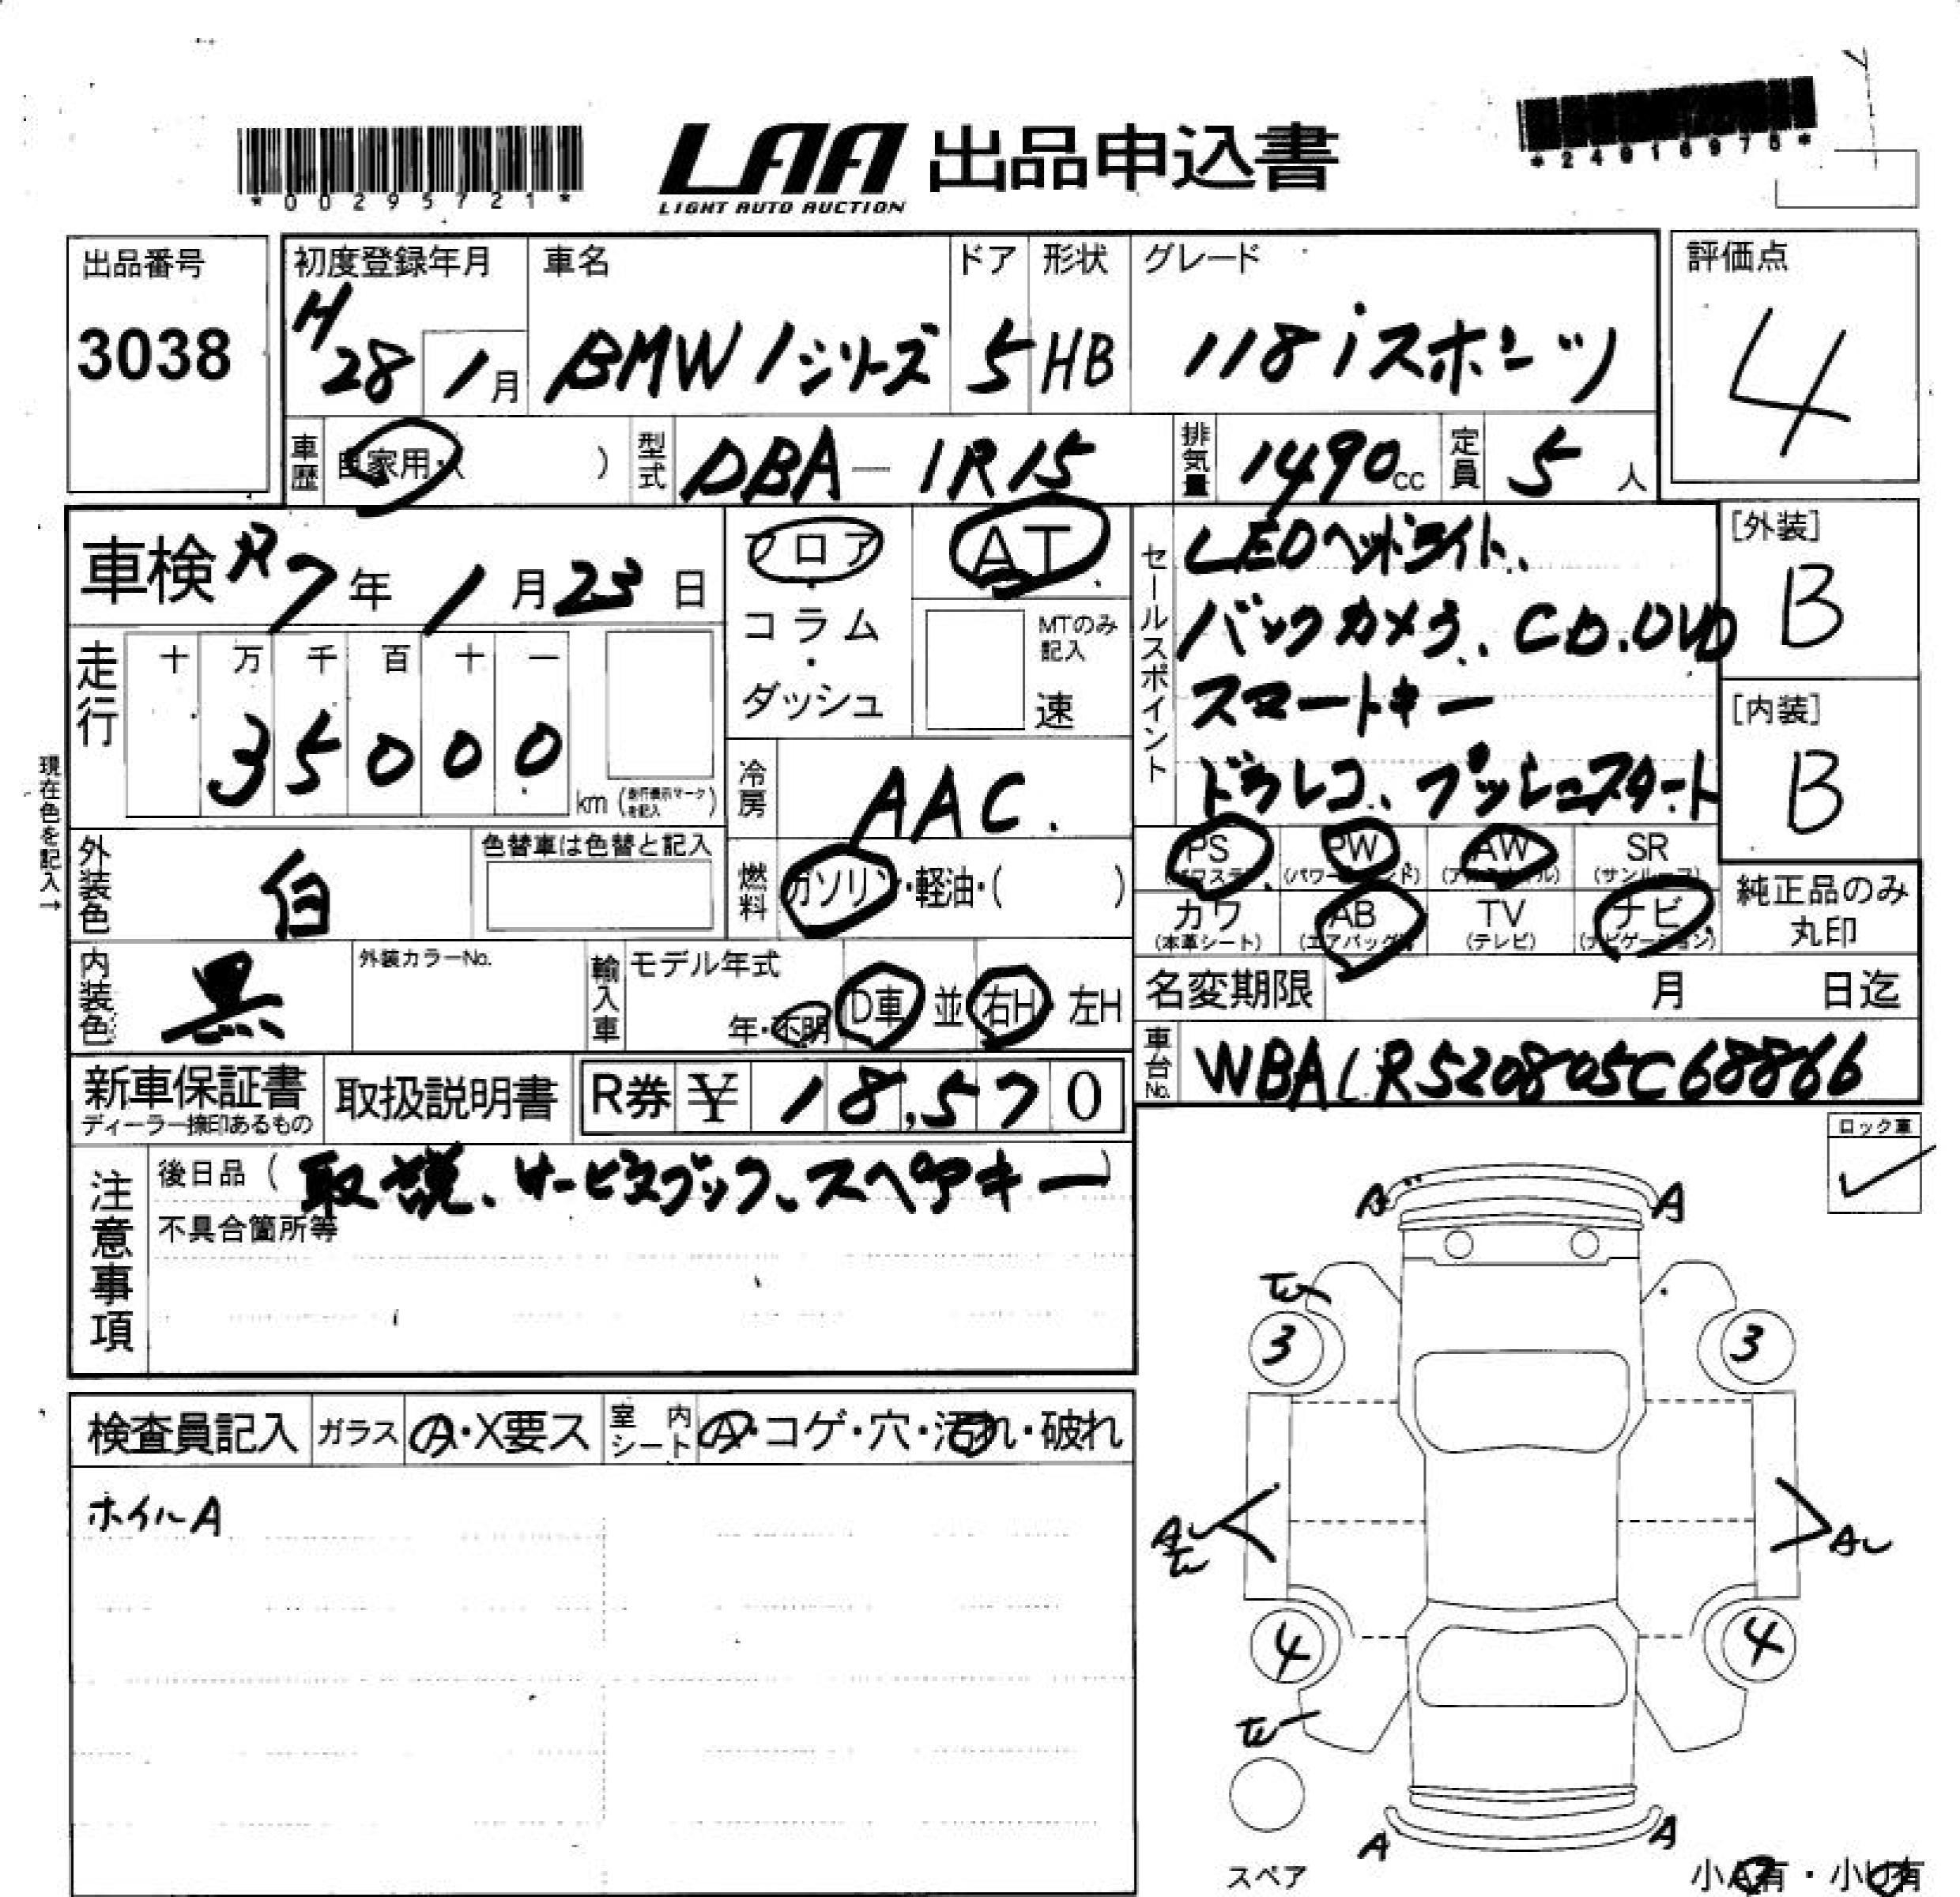 *00295721*
LAA 出品申込書
LIGHT AUTO AUCTION
*24916970*
出品番号
3038
初度登録年月
H28 1月
車名
BMW1シリーズ
ドア
5
形状
HB
グレード
118iスポーツ
評価点
4
車歴
自家用・( )
型式
DBA-1R15
排気量
1490cc
定員
5人
車検 R7年1月23日
フロア・コラム・ダッシュ
AT
MTのみ記入
速
セールスポイント
LEDヘッドライト、
バックカメラ、CD.DVD
スマートキー
ドラレコ、プッシュスタート
[外装]
B
[内装]
B
走行
十 万 千 百 十 一
35000
km (走行表示マークを記入)
現在色を記入→
冷房
AAC.
外装色
白
色替車は色替と記入
燃料
ガソリン・軽油・( )
PS PW AW SR
(パワステ) (パワーウィンド) (アルミホイル) (サンルーフ)
カワ AB TV ナビ
(本革シート) (エアバッグ) (テレビ) (ナビゲーション)
純正品のみ丸印
内装色
黒
外装カラーNo.
輸入車
モデル年式
年・不明
D車 並 右H 左H
名変期限 月 日迄
車台No.
WBALR520805C68866
新車保証書
ディーラー捺印あるもの
取扱説明書
R券 ¥18,570
ロック車
注意事項
後日品 (取説、サービスブック、スペアキー)
不具合箇所等
A A
3 3
検査員記入
ガラス
A・X要ス
室内シート
A・コゲ・穴・汚れ・破れ
ホイルA
4 4
A A
スペア
小A有・小U有